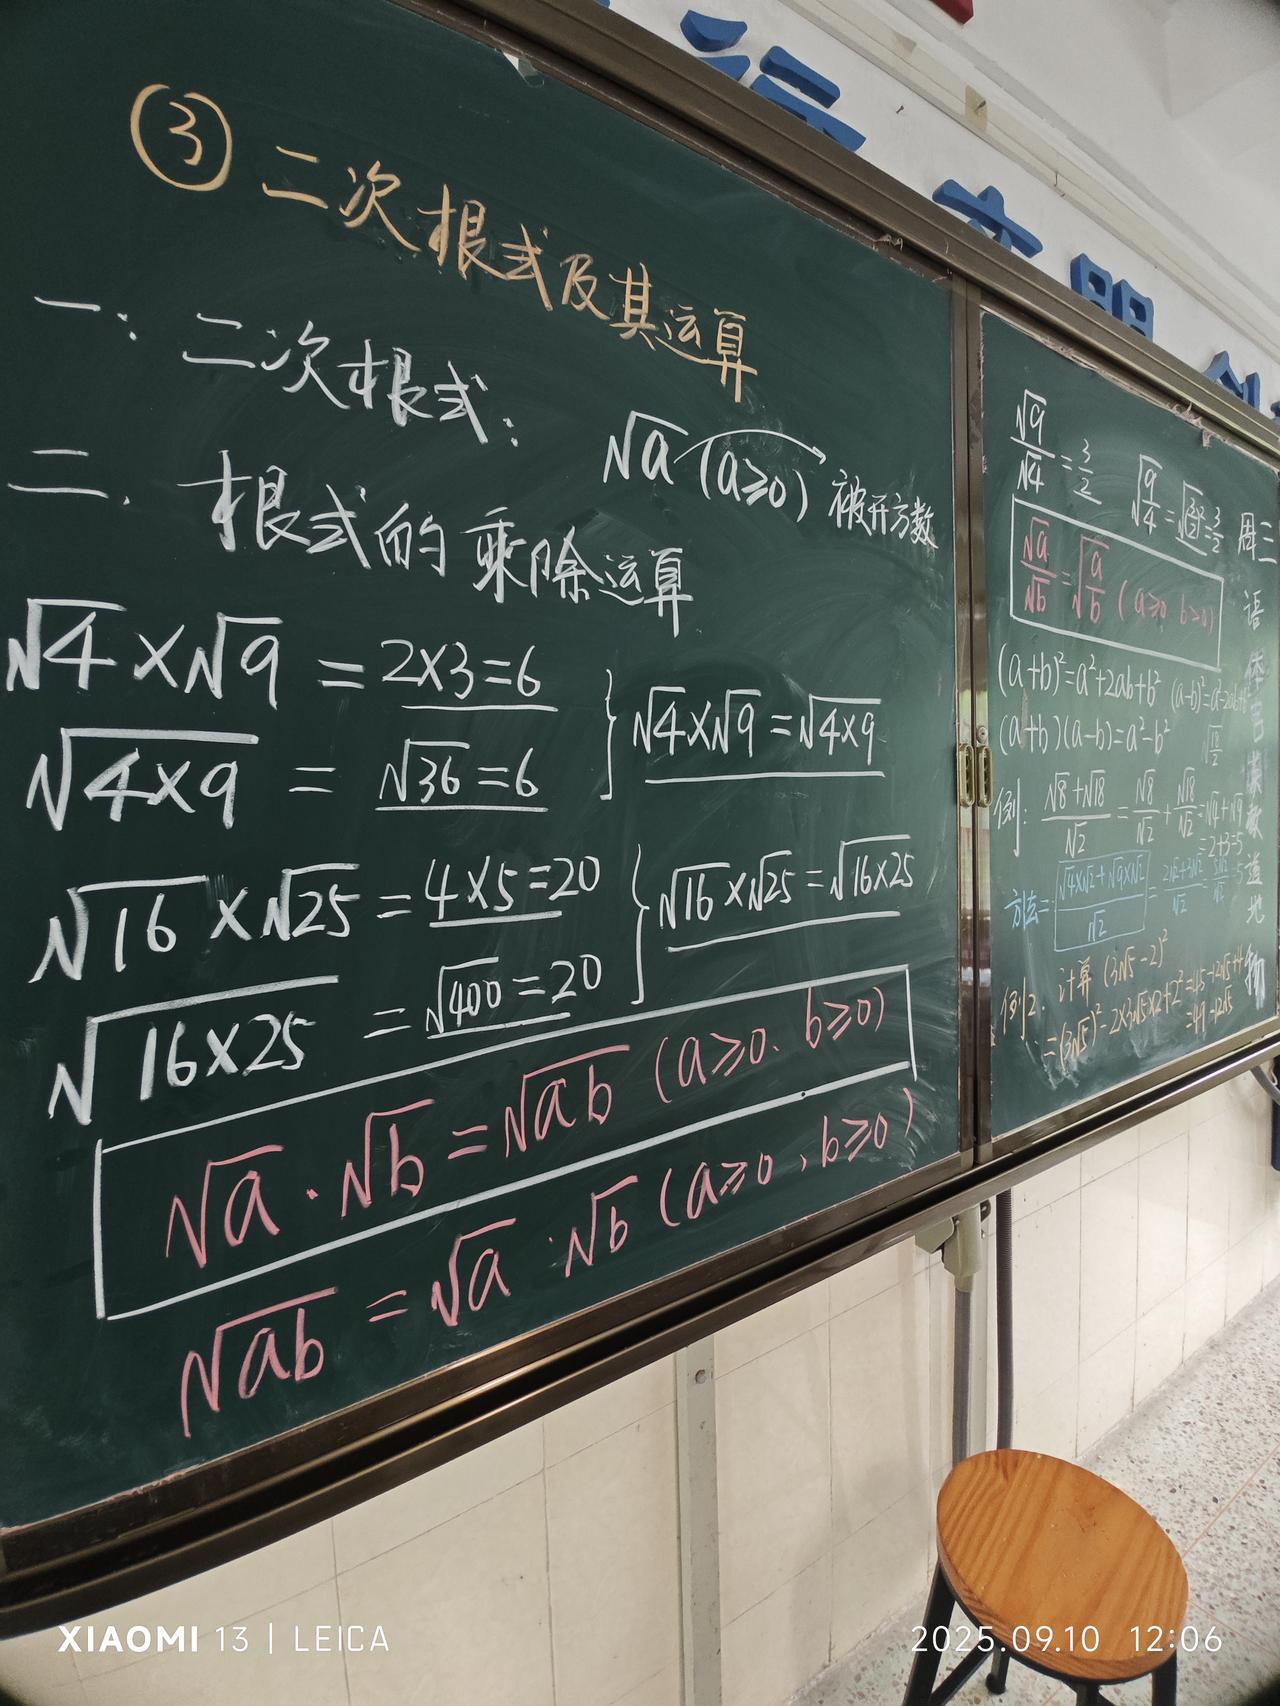 ③ 二次根式及其运算
一、二次根式: √a (a≥0) 被开方数
二、根式的乘除运算
√4×√9 = 2×3=6
√(4×9) = √36=6
√4×√9=√(4×9)
√16×√25=4×5=20
√(16×25) =√400=20
√16×√25=√(16×25)
√a·√b=√ab (a≥0、b≥0)
√ab=√a·√b (a≥0,b≥0)
√9/√4=3/2
√a/√b=√(a/b) (a≥0 b>0)
(a+b)²=a²+2ab+b²
(a+b)(a-b)=a²-b²
例: (√8+√18)/√2=√8/√2+√18/√2=√4+√9
=2+3=5
方法二 (√4×√2+√9×√2)/√2=
例2. 计算 (3√5-2)²
=(3√5)²-2×3√5×2+2²
周三
语
道
地
物
文明
XIAOMI 13 | LEICA
2025.09.10 12:06